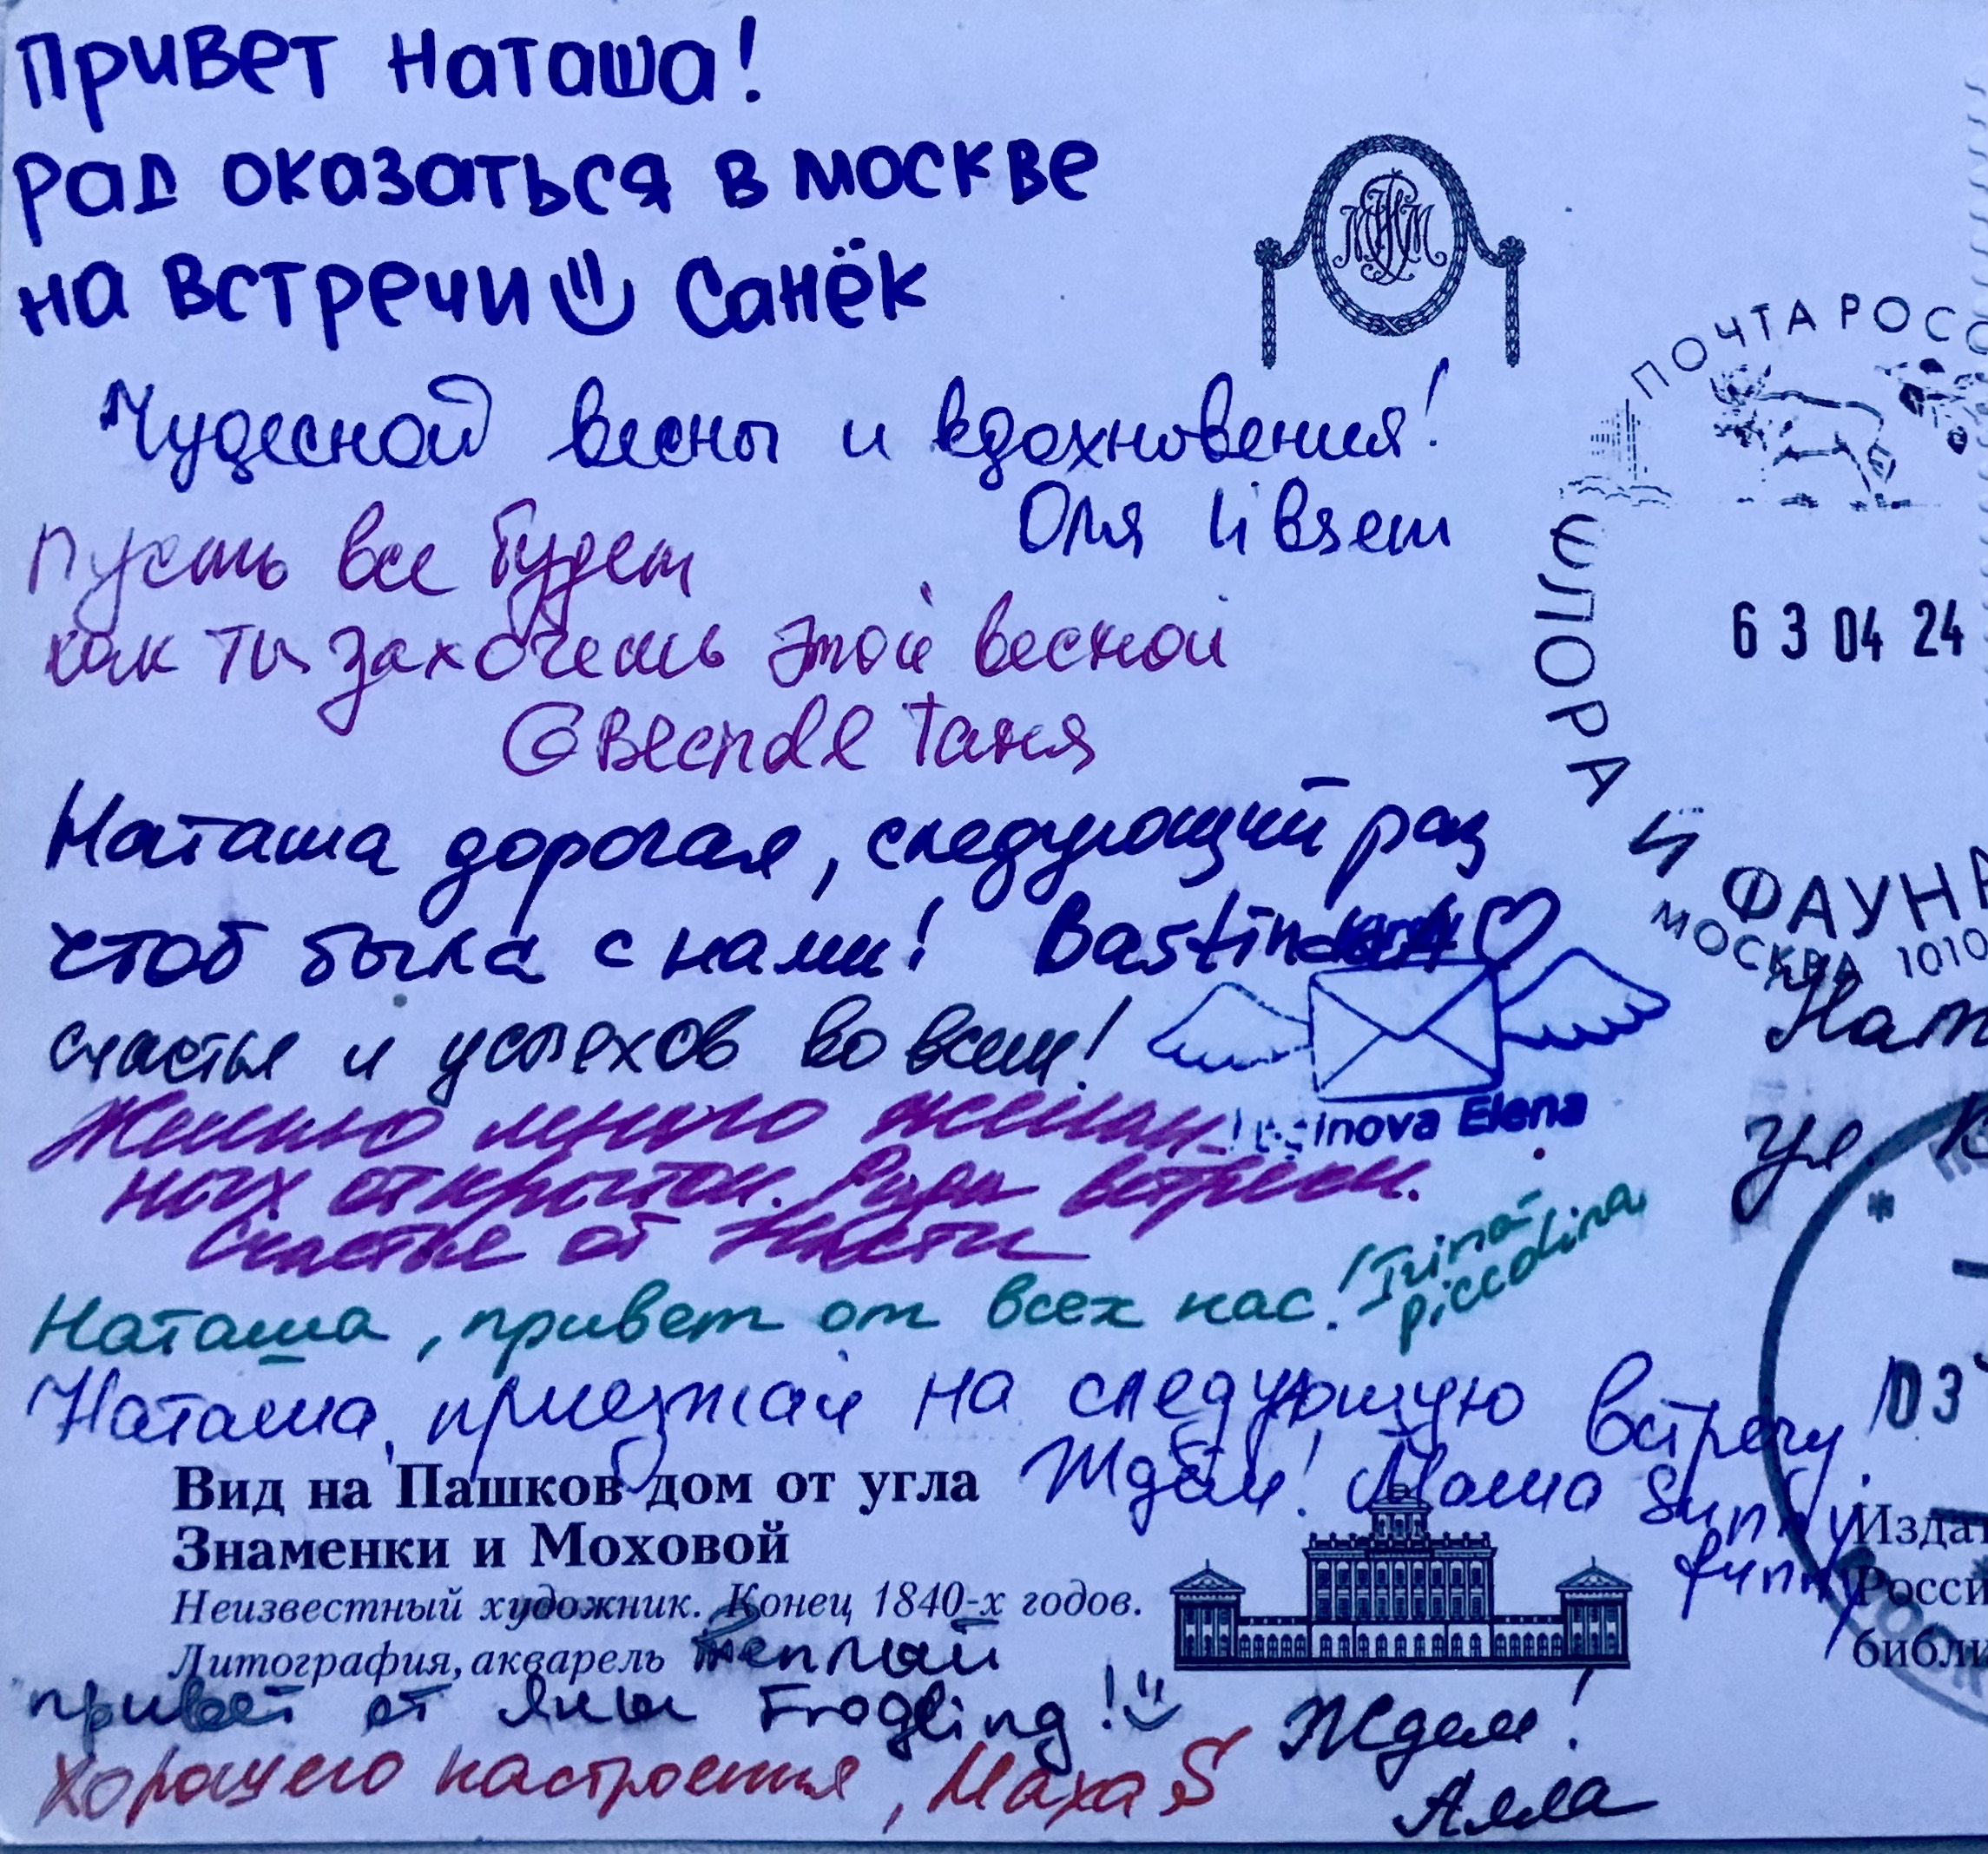 Привет Наташа!
рад оказаться в москве
на встречи Санёк
Чудесной весны и вдохновения!
Оля
Пусть все будет
как ты захочешь этой весной
Таня
ПОЧТА РОСС
ФЛОРА И ФАУНЫ
МОСКВА 1010
6 3 04 24
Наташа дорогая, следующий раз
чтоб была с нами! Bastinda
счастья и успехов во всем!
inova Elena
Нат
ул. К
Желаю много желан-
ных открыток. Рада встрече.
Счастья от Насти
Наташа, привет от всех нас! Irina-
piccolina
Наташа, приезжай на следующую встречу.
Ждём! Маша Sunny
funny
03
Вид на Пашков дом от угла
Знаменки и Моховой
Неизвестный художник. Конец 1840-х годов.
Литография, акварель
Теплый
привет от Яны Frogling!
Хорошего настроения, Маха S
Ждем!
Алла
Издат
Росси
библи